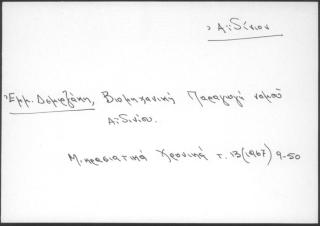 Ἀϊδίνιον
Ἐμμ. Δομρζάκη, Βιομηχανική Παραγωγή νομοῦ
Ἀϊδινίου.
Μικρασιατικά Χρονικά τ. 13 (1967) 9-50